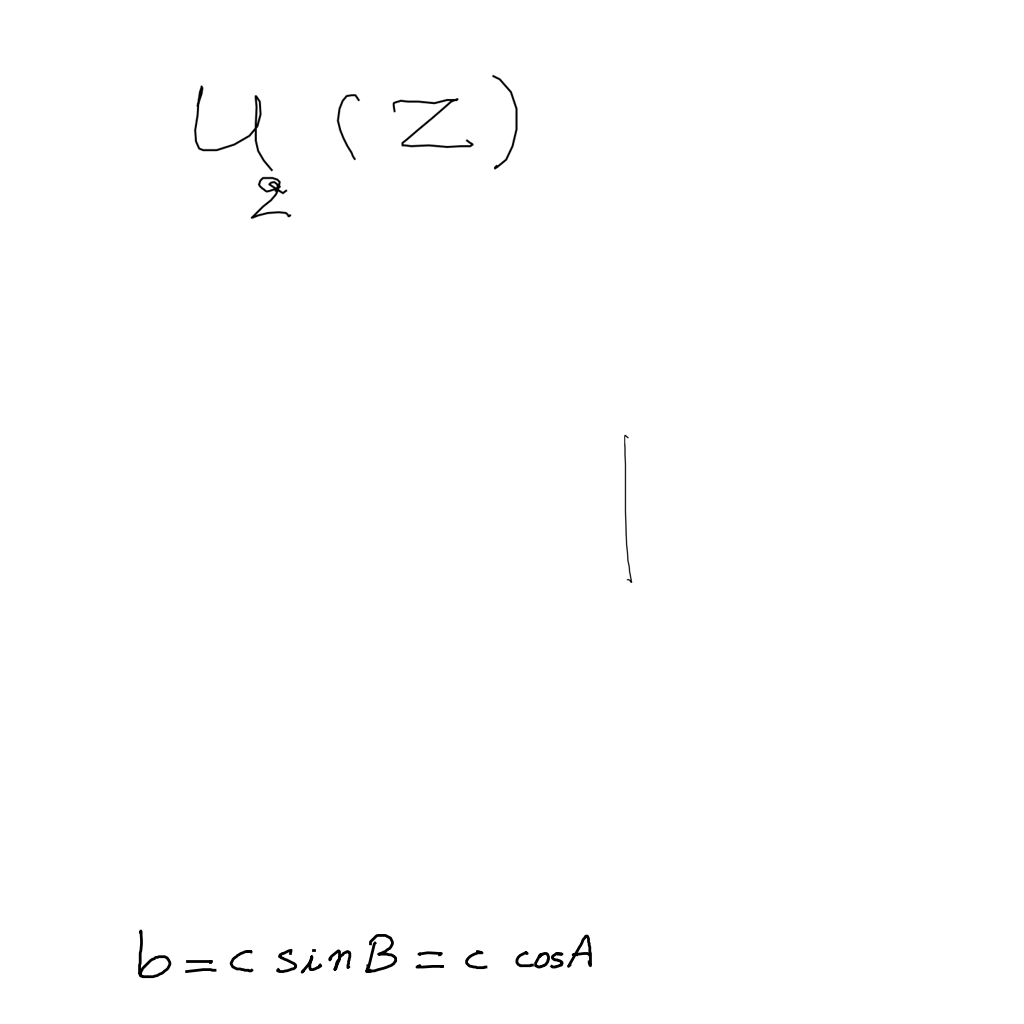 u₂(z)
|
b = c sin B = c cos A